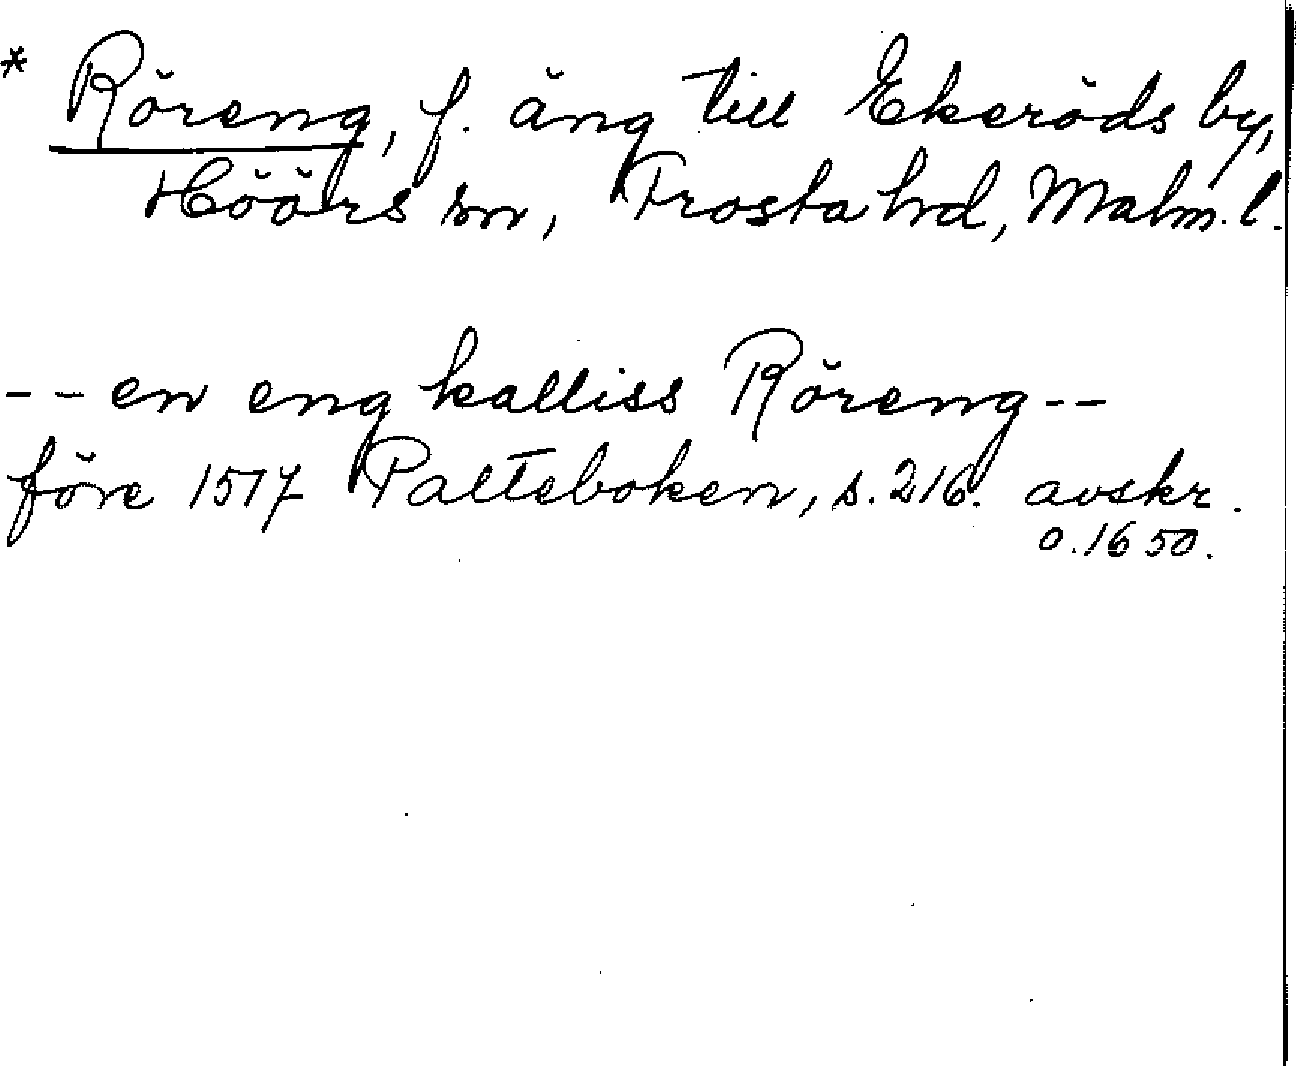 * Röreng, f. äng till Ekeröds by,
Höörs sn, Frosta hd, Malm. l.
-- en eng kalliss Röreng --
före 1517 Palteboken, s. 216. avskr.
o. 1650.